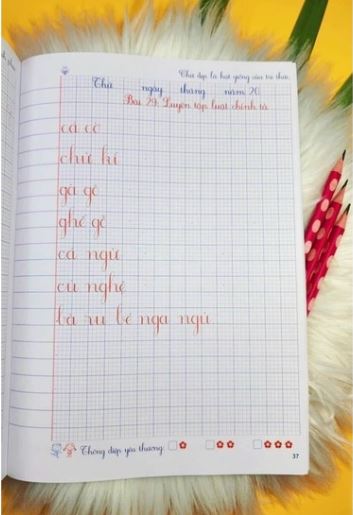 Chữ đẹp là hạt giống của tri thức
Thứ ngày tháng năm 20
Bài 29: Luyện tập luật chính tả
cá cờ
chữ kí
gà gô
ghế gỗ
cá ngừ
củ nghệ
bà ru bé nga ngủ
Thông điệp yêu thương:
37